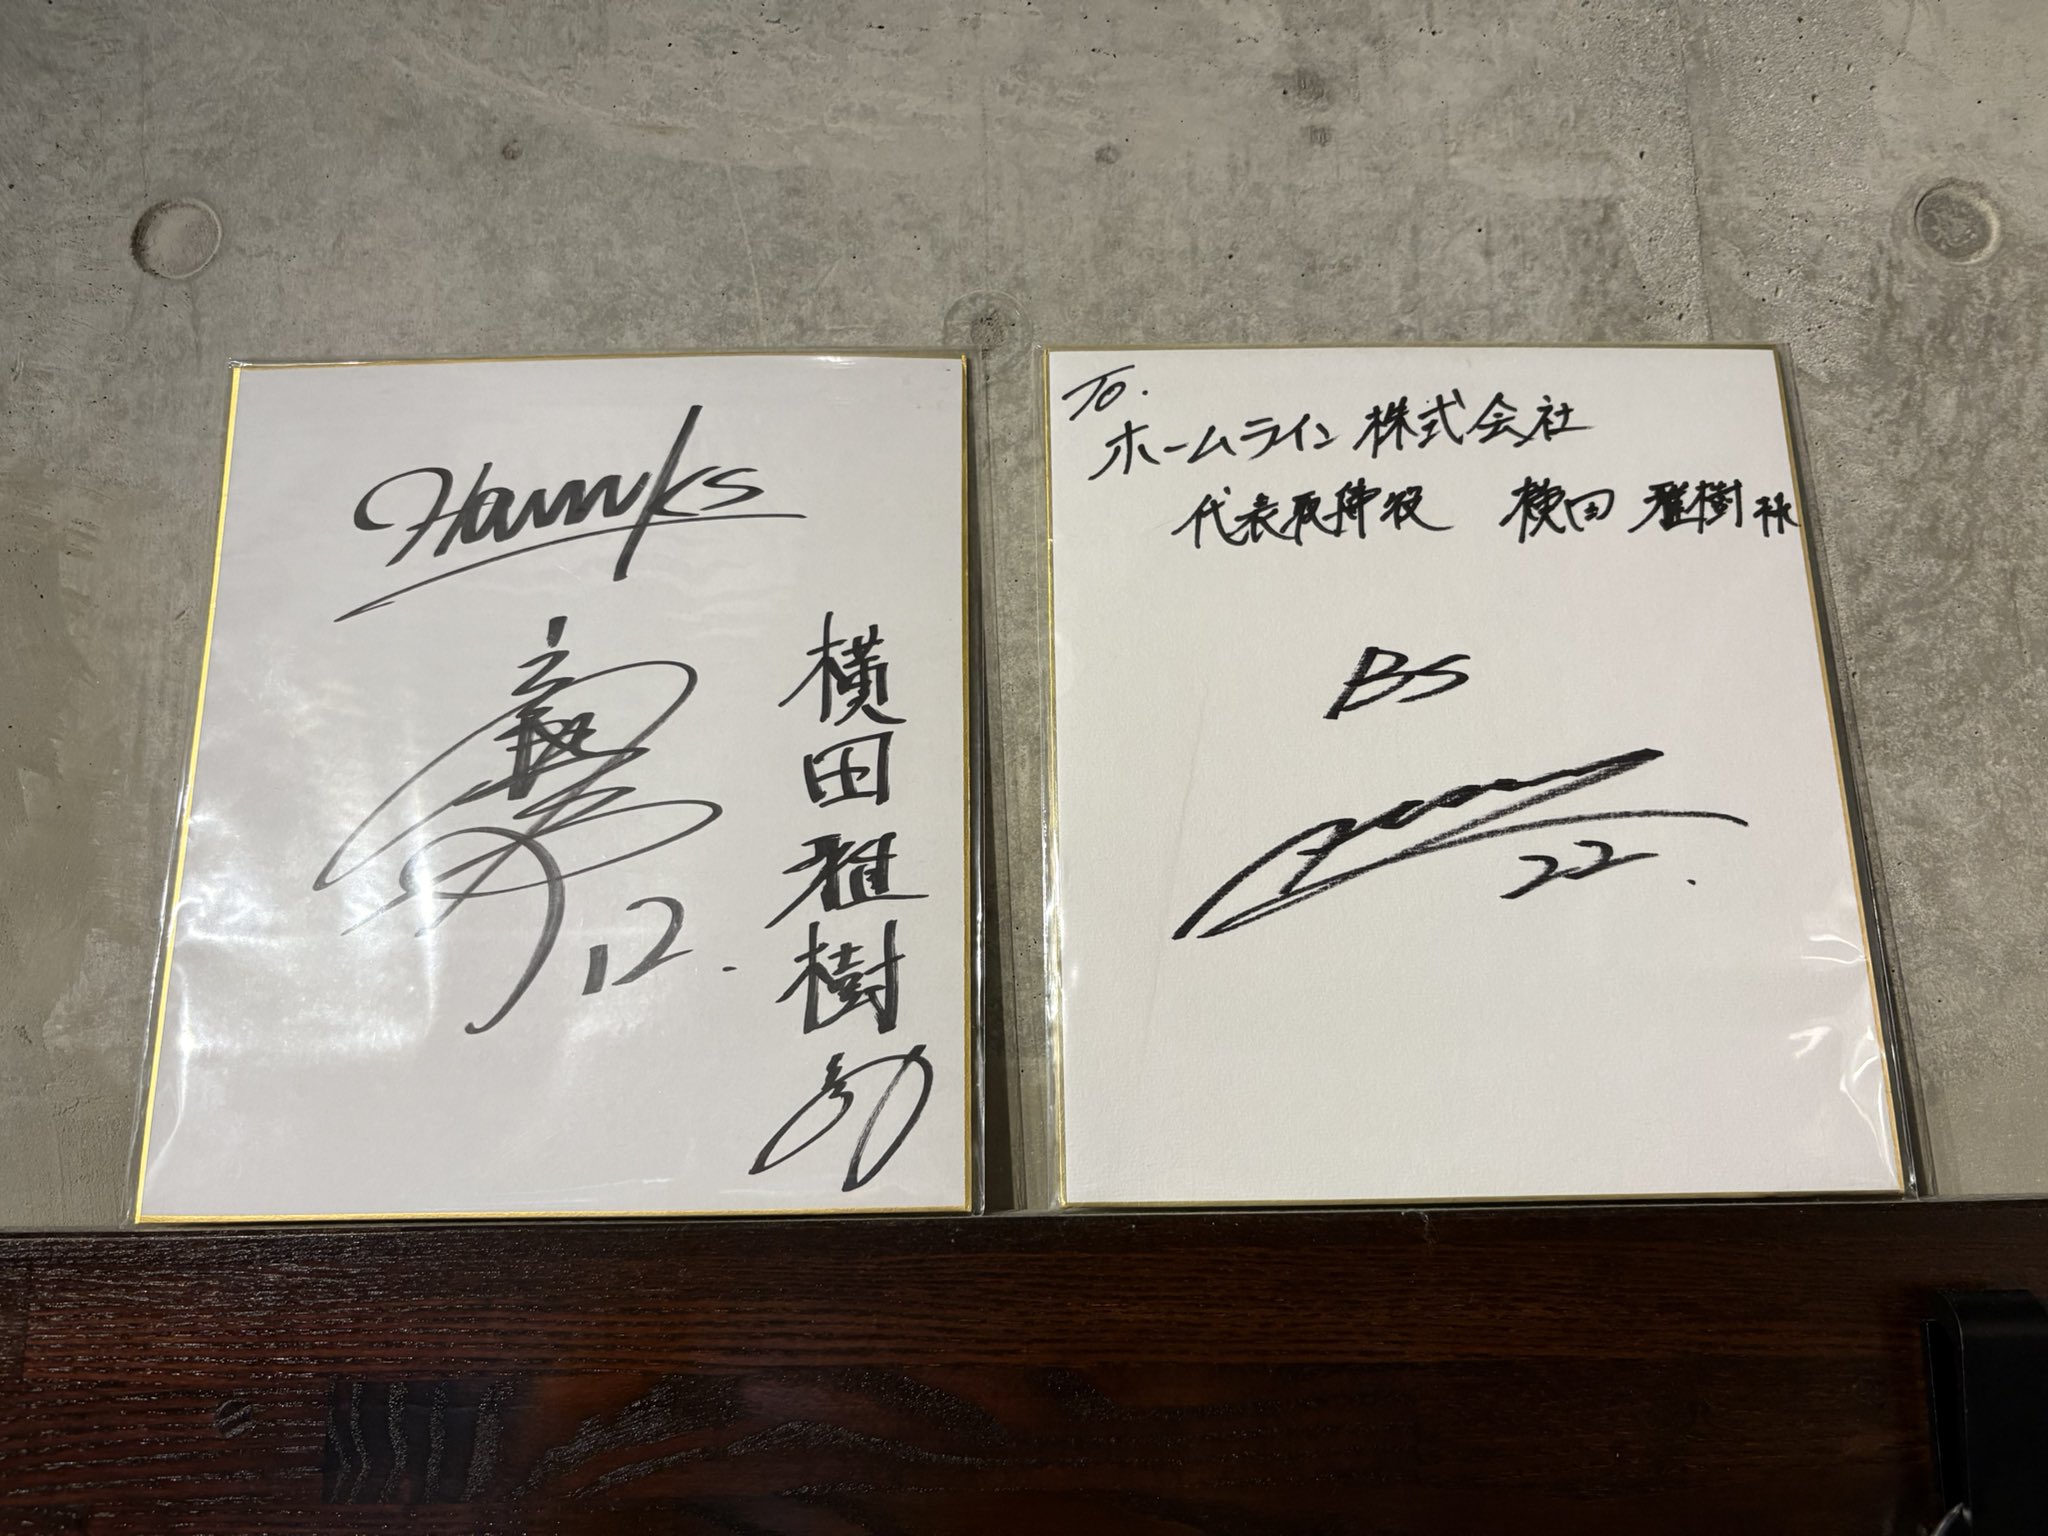 Hawks
12.
横田雅樹
To.
ホームライン株式会社
代表取締役 横田 雅樹様
BS
22.